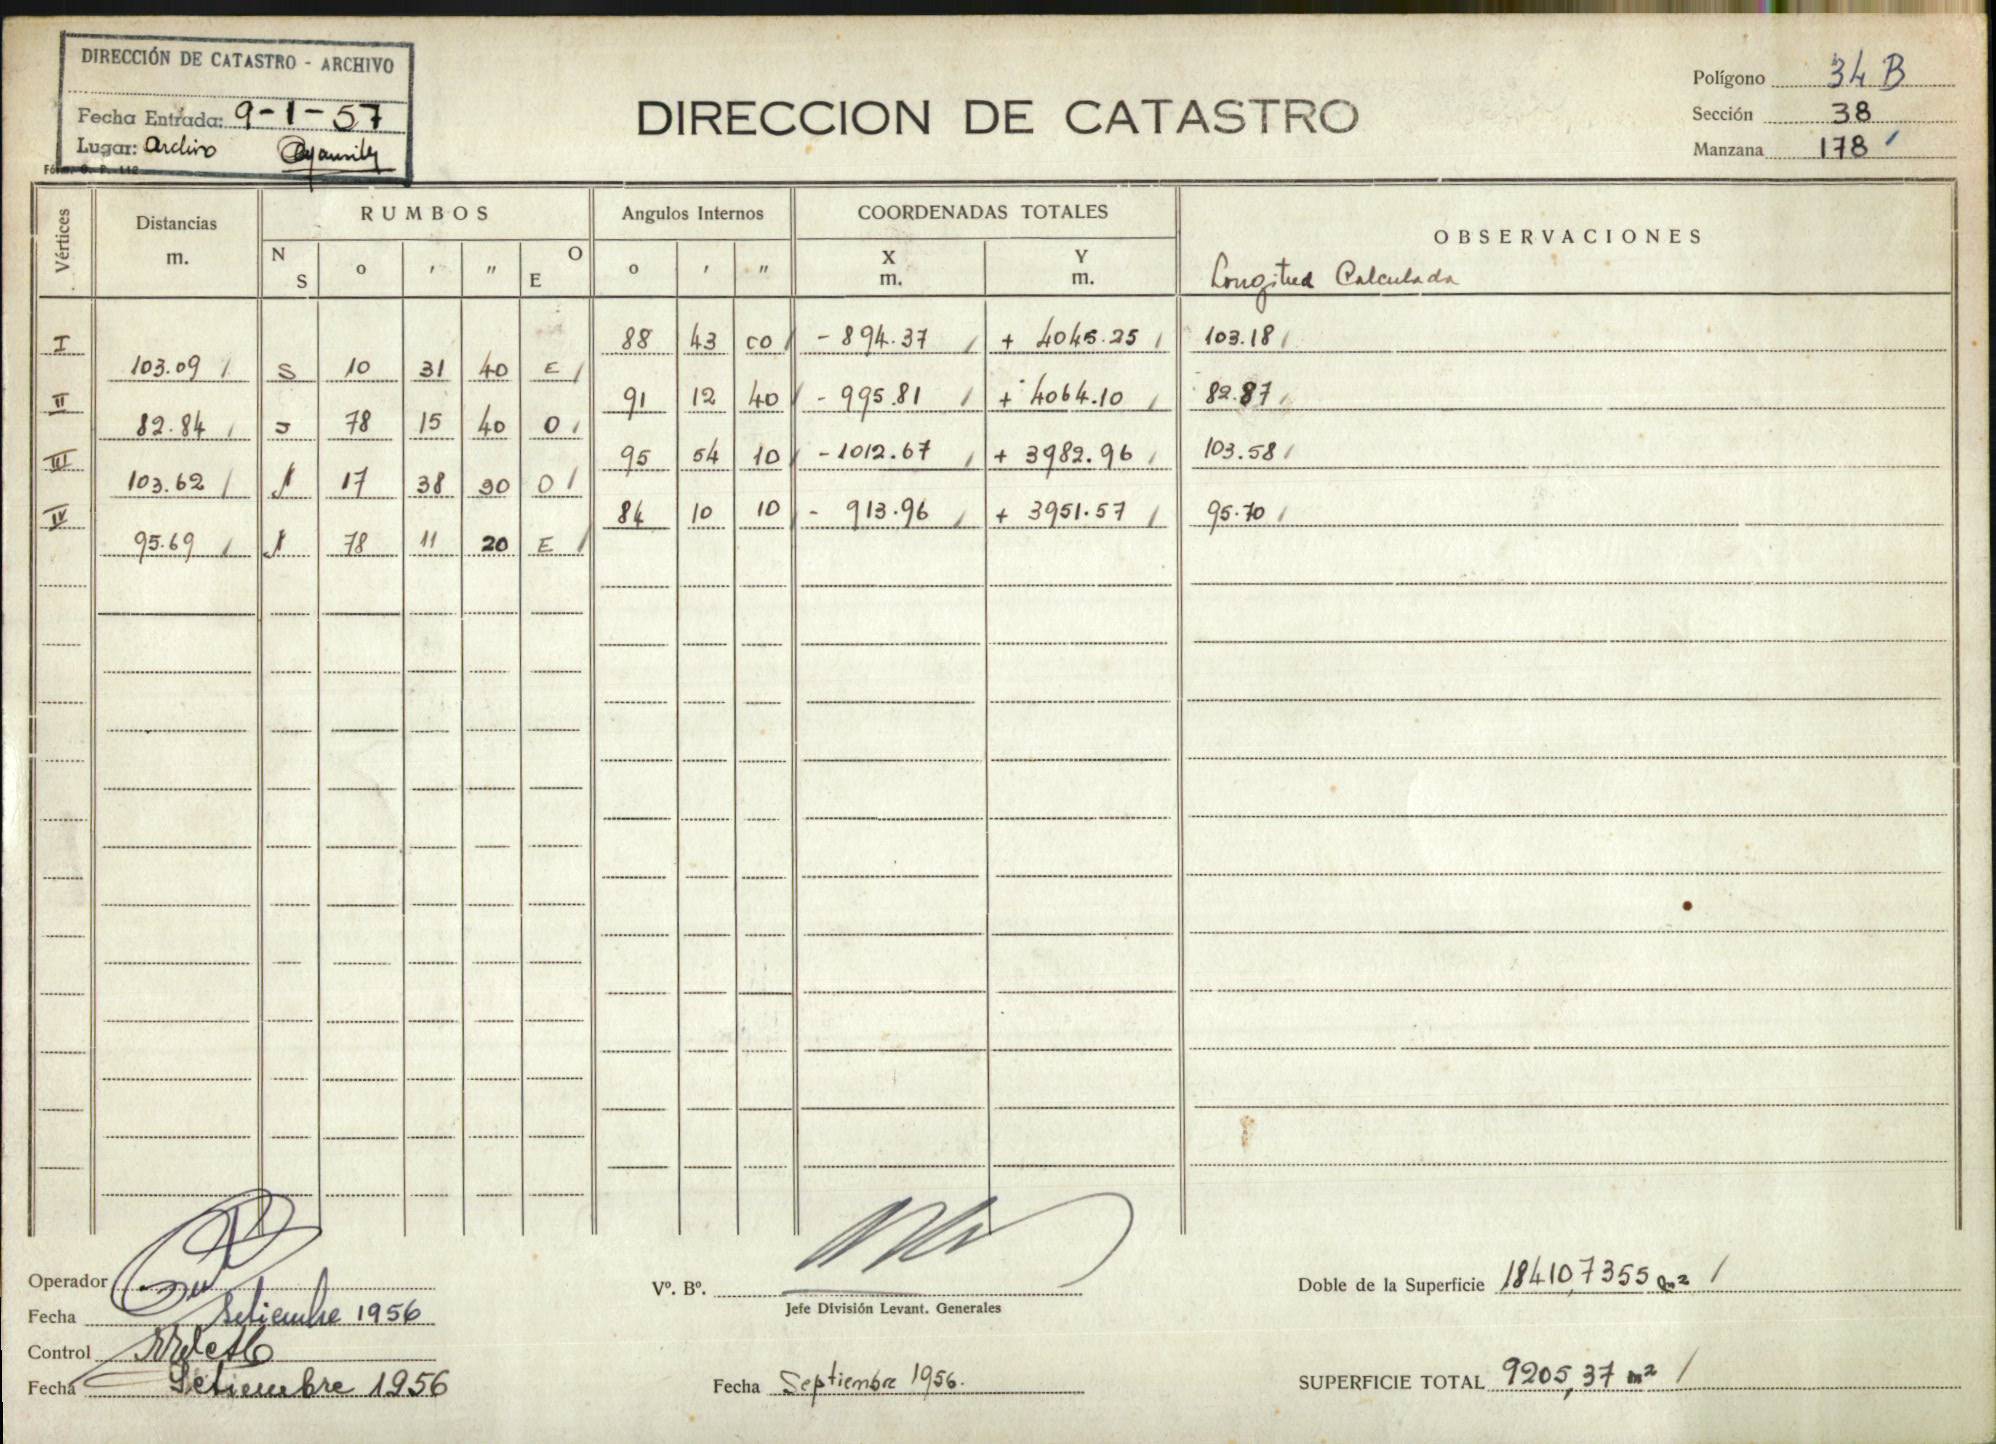 DIRECCIÓN DE CATASTRO - ARCHIVO
Fecha Entrada: 9-1-57
Lugar: Archivo
DIRECCION DE CATASTRO
Polígono 34 B
Sección 38
Manzana 178
Vértices
Distancias m.
RUMBOS
N S o ' " O E
Angulos Internos
o ' "
COORDENADAS TOTALES
X m.
Y m.
OBSERVACIONES
Longitud Calculada
I 88 43 00 - 894.37 + 4045.25 103.18
103.09 S 10 31 40 E
II 91 12 40 - 995.81 + 4064.10 82.87
82.84 S 78 15 40 O
III 95 54 10 - 1012.67 + 3982.96 103.58
103.62 N 17 38 30 O
IV 84 10 10 - 913.96 + 3951.57 95.70
95.69 N 78 11 20 E
Operador
Fecha Setiembre 1956
Control
Fecha Setiembre 1956
Vº. Bº.
Jefe División Levant. Generales
Fecha Septiembre 1956.
Doble de la Superficie 18410,7355 m2
SUPERFICIE TOTAL 9205,37 m2